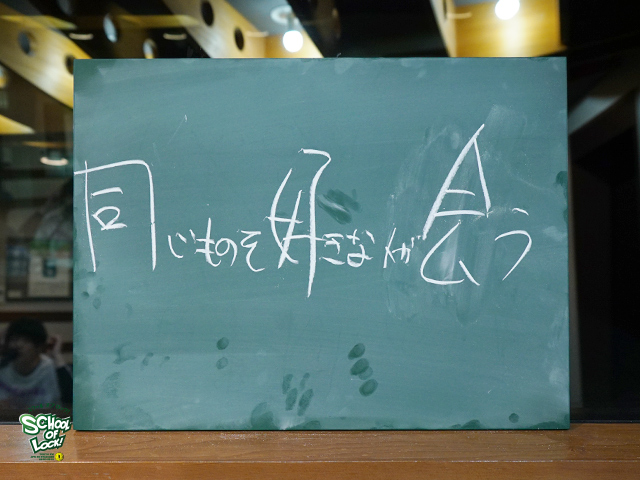 同じものを好きな人が会う
SCHOOL
OF
LOCK!